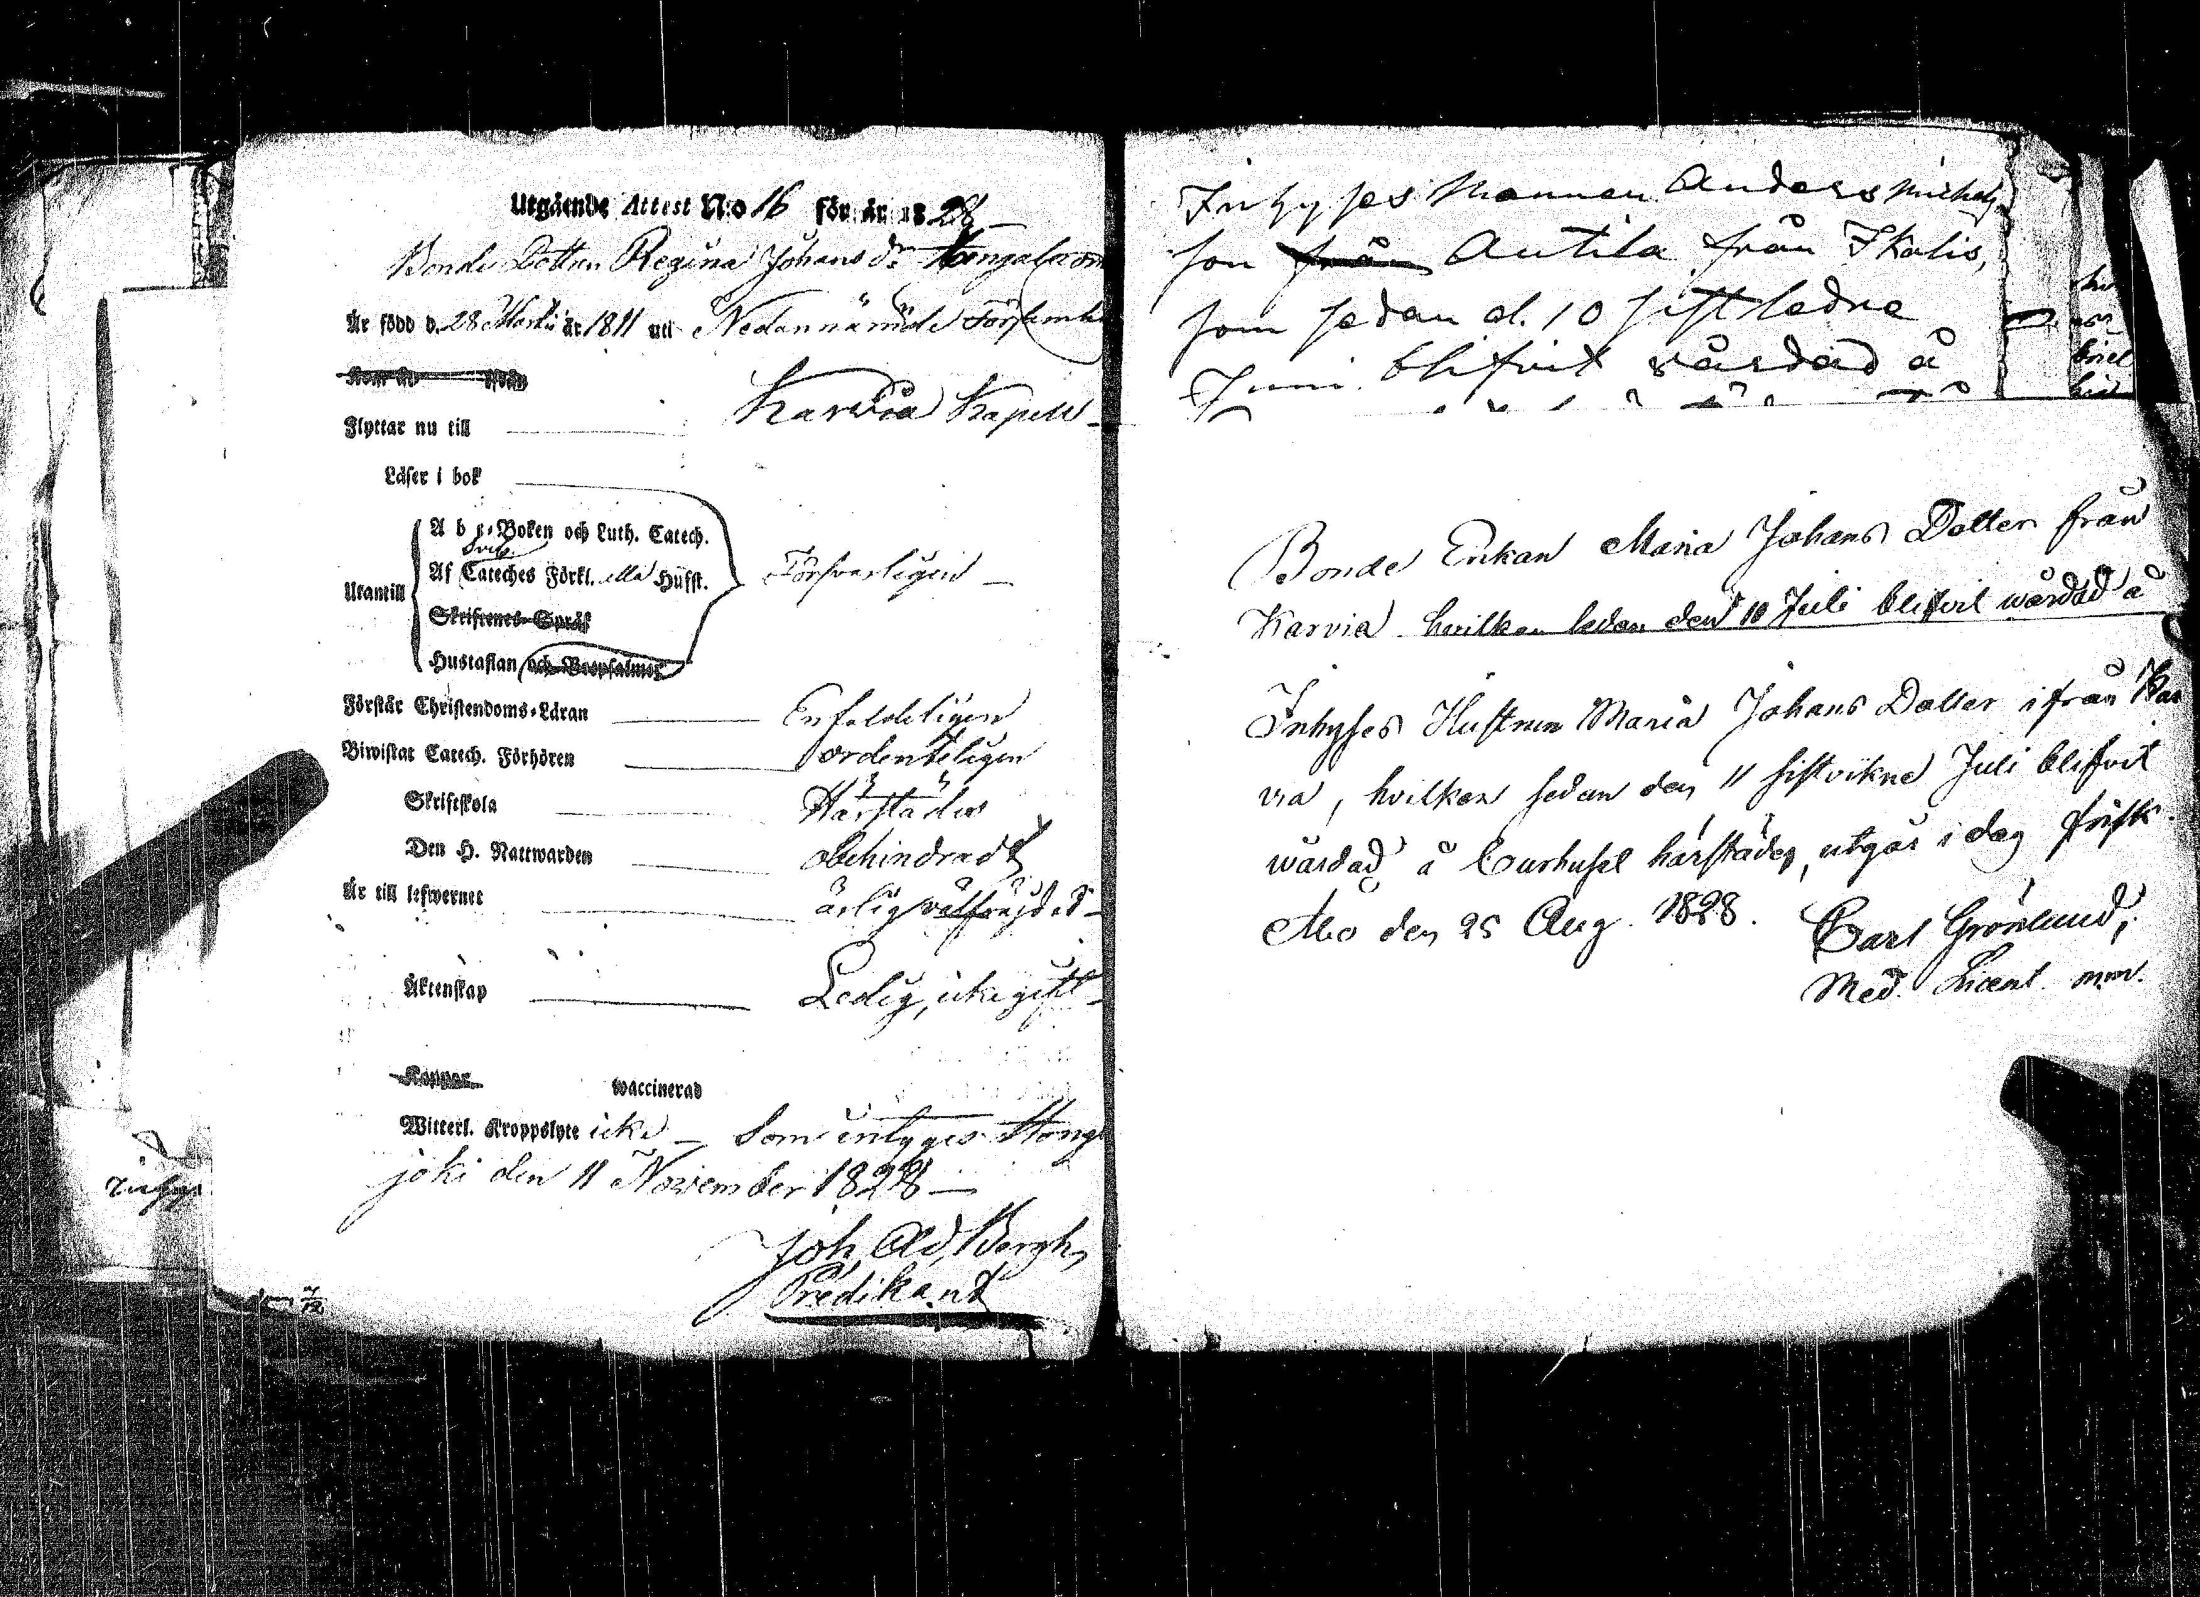 Utgående Attest No 16 för år 1828
Bonde Dottren Regina Johans dr
Är född d. 28 Martii år 1811 uti Nedannämde Församling
Kom år från
Flyttar nu till Karvia Kapell
Läser i bok
A b c-Boken och Luth. Catech.
Svib.
Af Cateches Förkl. eller Husft. Försvarligen
Utantill
Skriftenes-Språk
Hustaflan och Bootpsalmer
Förstår Christendoms-Läran Enfaldeligen
Biwistat Catech. Förhören ordenteligen
Skriftskola Härstädes
Den H. Nattwarden obehindradt
Är till lefwernet ärlig välfrejdad
Äktenskap Ledig, icke gift
Koppor waccinerad
Witterl. Kroppslyte icke Som intygas Hong
joki den 11 November 1828
Joh. Ad. Bergh,
Predikant
Inhyses Mannen Anders Michels
son från Antila från Ikalis,
som sedan d. 10 sistledne
Juni blifvit vårdad å
Bonde Enkan Maria Johans Dotter från
Karvia hvilken sedan den 10 Juli blifvit wårdad å
Inhyses Hustrun Maria Johans Dotter ifrån Kar
via, hvilken sedan den 11 sistvikne Juli blifvit
wårdad å Curhuset härstädes, utgår i dag frisk.
Åbo den 25 Aug. 1828. Carl Grönlund,
Med. Licent. mm.